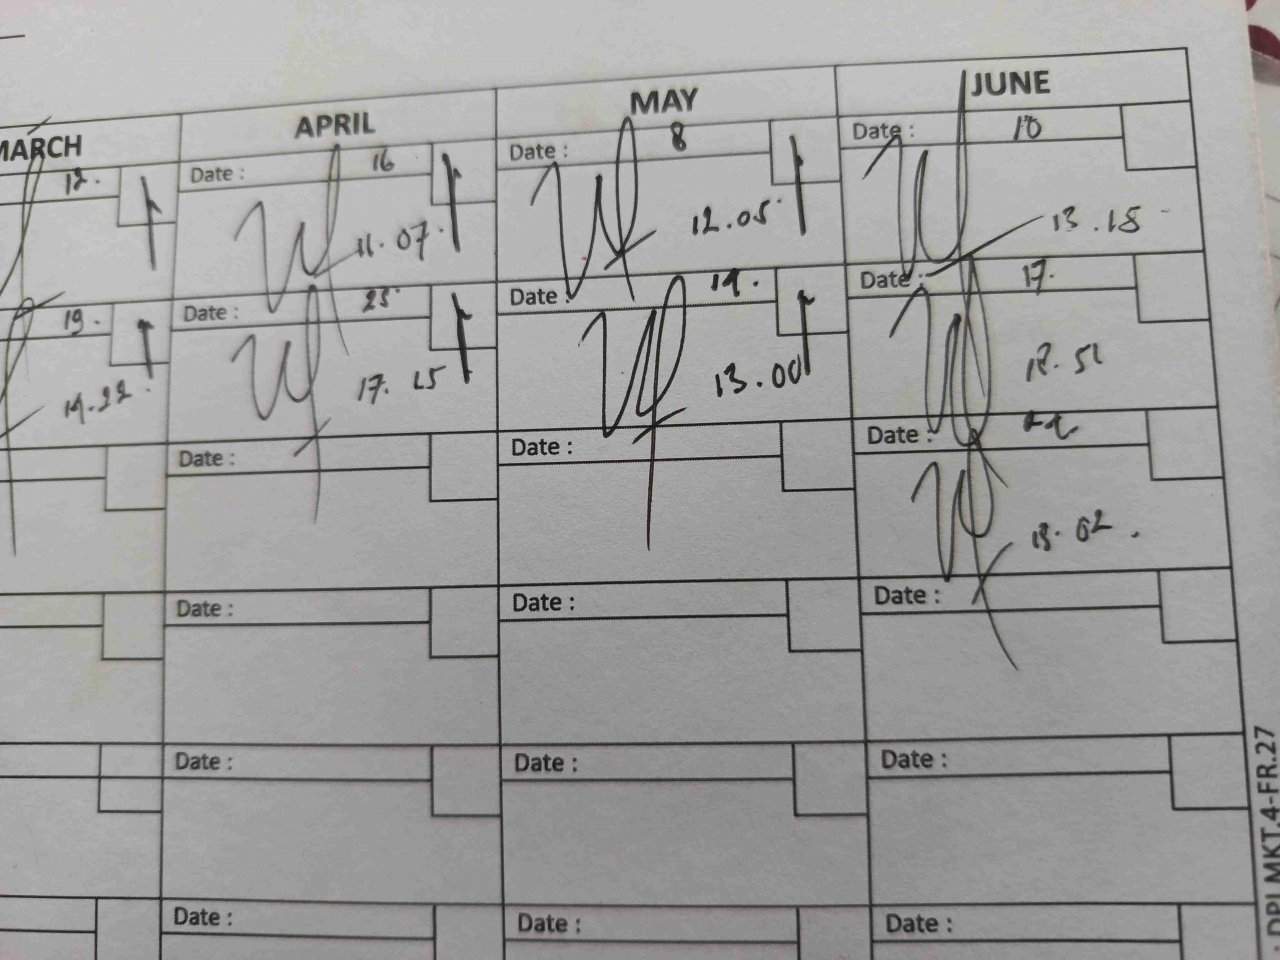 MARCH APRIL MAY JUNE
12. Date : 16 Date : 8 Date : 10
11.07 12.05 13.18
19. Date : 23 Date : 19. Date : 17.
17.25 13.00
Date : Date : Date :
13.02.
Date : Date : Date :
Date : Date : Date :
Date : Date : Date :
DPI.MKT.4-FR.27